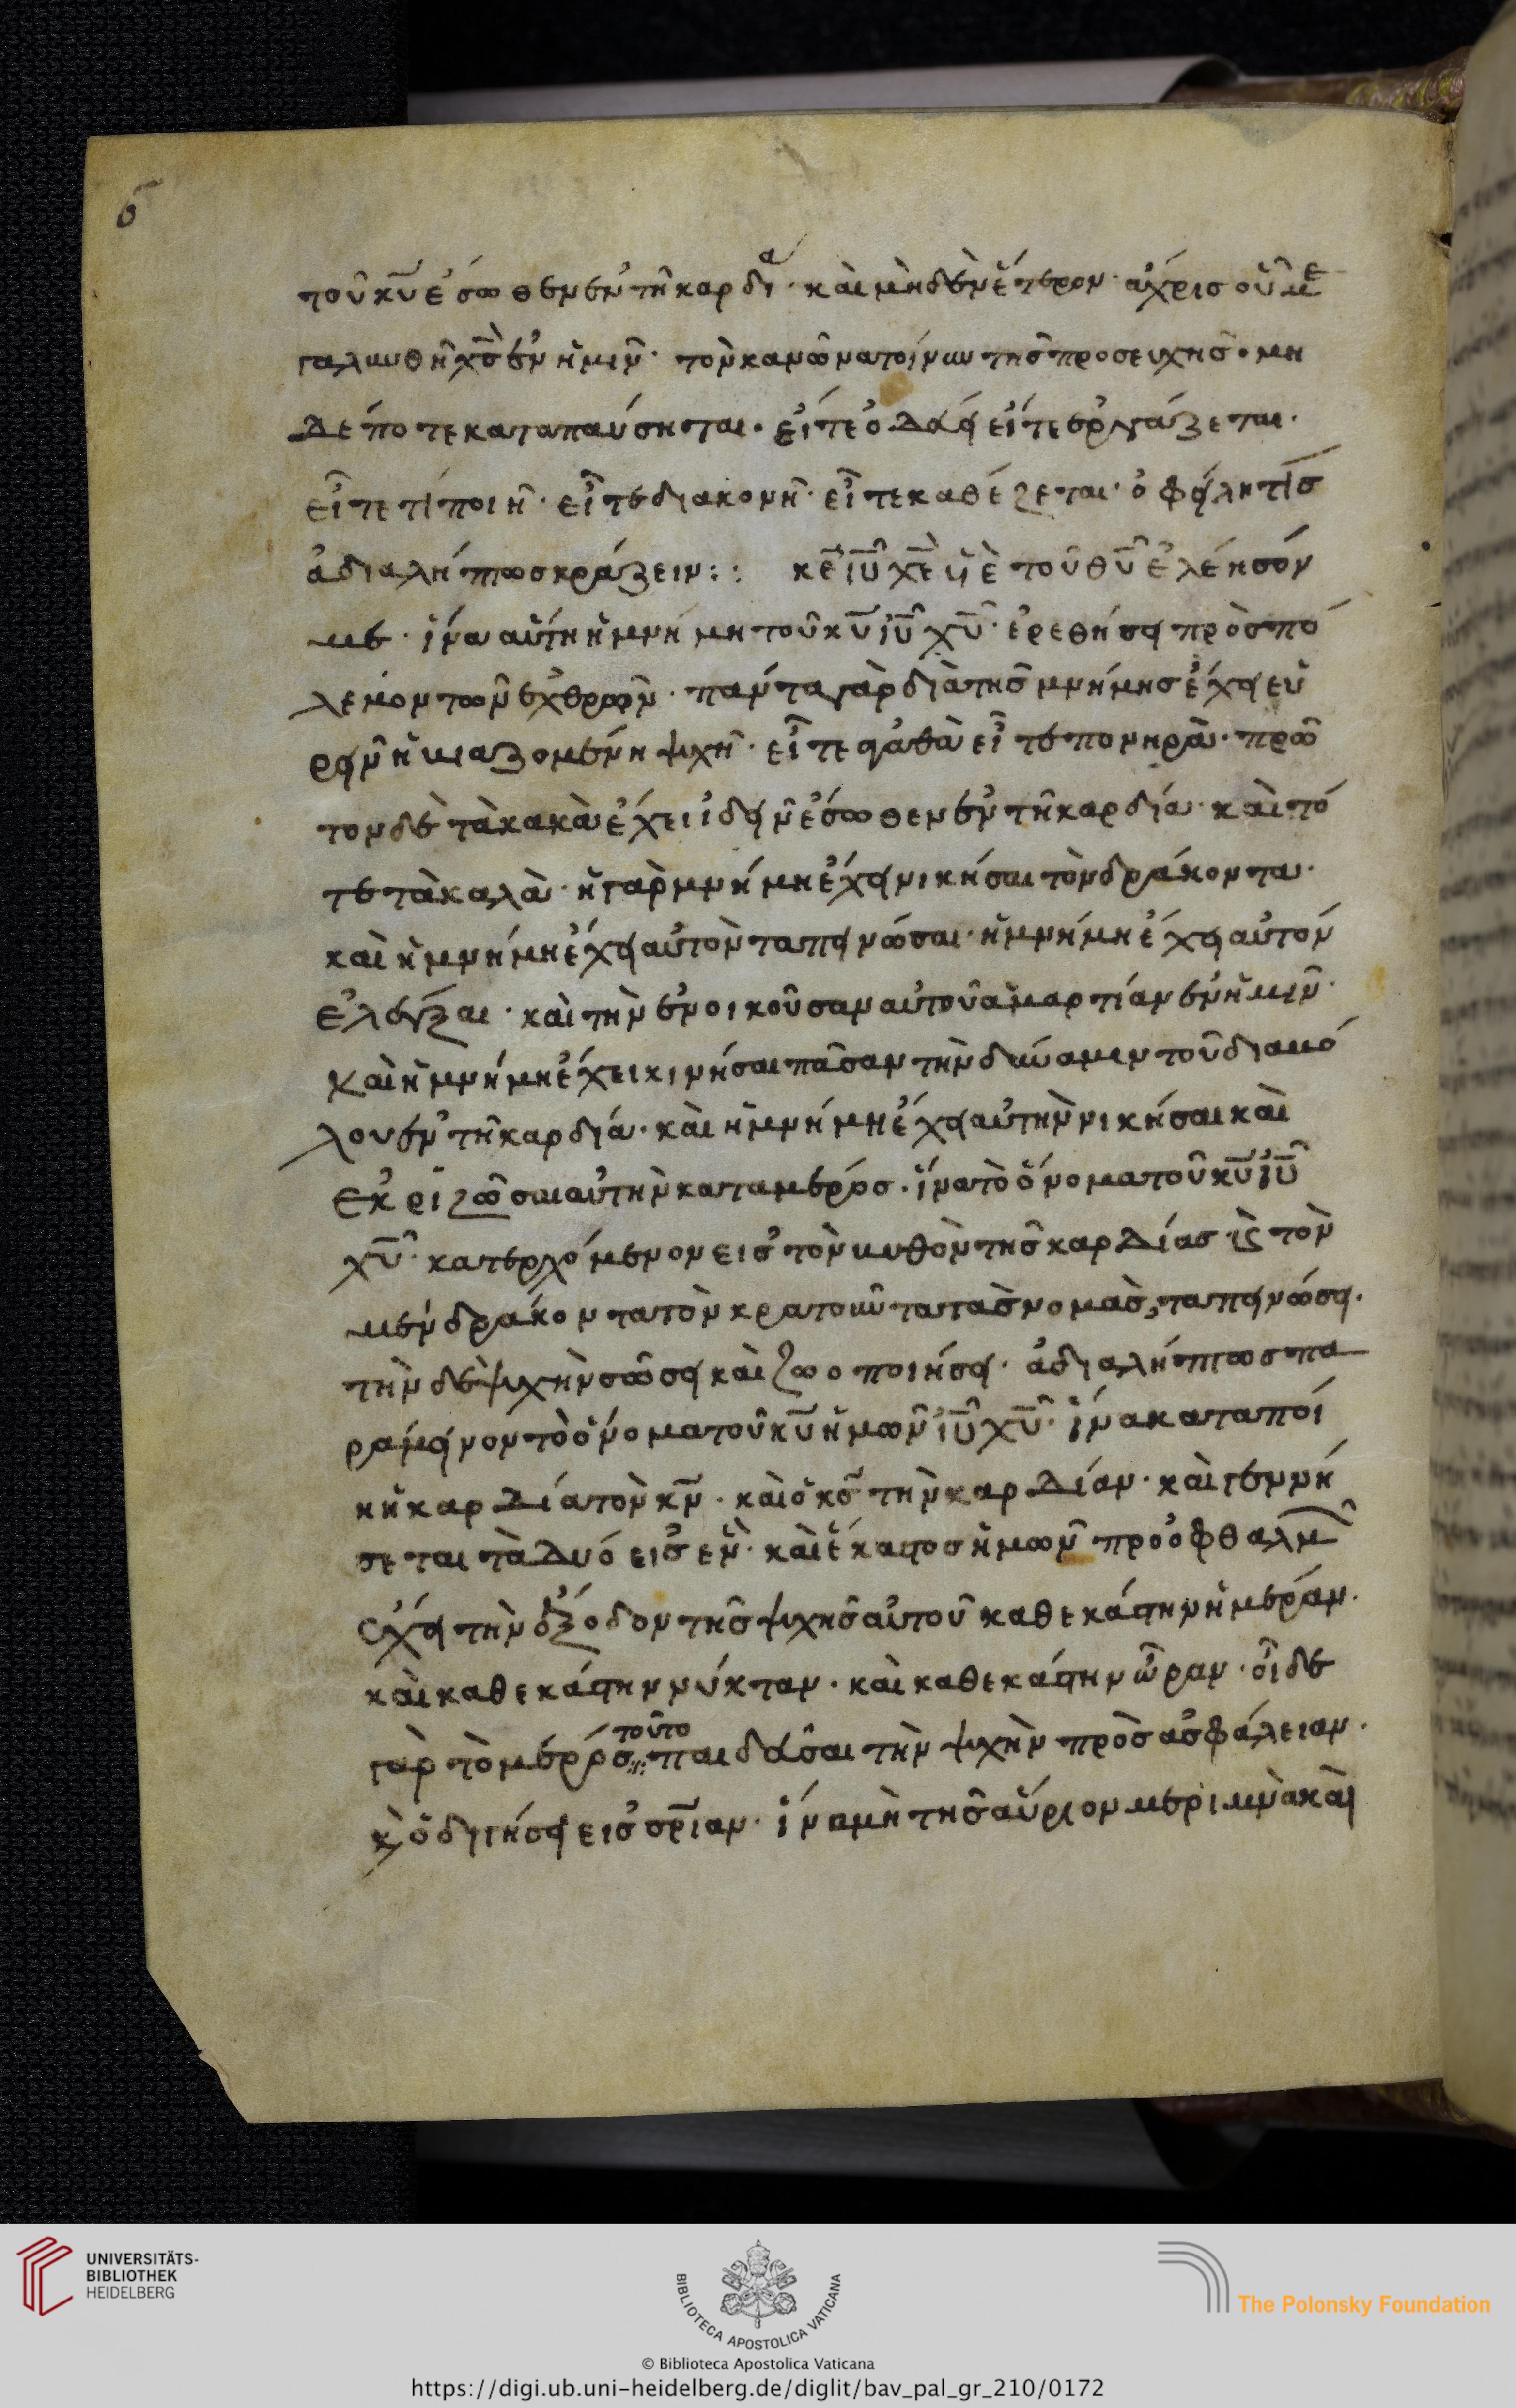 τοῦ κῡ ἔσωθεν ἐν τῆ καρδία· καὶ μὴδὲν ἕτερον· ἄχρισ οὗ με
γαλυνθῆ χσ ἐν ἡμῖν· τὸν κανῶνα τοίνυν τῆσ προσευχῆσ· μη
δέποτε καταπαύσηται· εἴτε ὁδεύει εἴτε ἐργάζεται·
εἶτε τί ποιῆ· εἶτε διακονῆ· εἶτε καθέζεται· ὀφείλει τίσ
ἀδιαλήπτωσ κράζειν:: κε ιυ χε υἱὲ τοῦ θῡ ἐλέησόν
με· ἵνα αὕτη ἡ μνήμη τοῦ κῡ ιυ χυ· ἐρεθήσει πρὸσ πό
λεμον τῶν ἐχθρῶν· πάντα γὰρ διὰ τῆσ μνήμησ ἔχει εὑ
ρεῖν ἡ βιαζομένη ψυχή· εἶτε ἀγαθὰ εἶτε πονηρὰ· πρῶ
τον δὲ τὰ κακὰ ἔχει ἰδεῖν ἔσωθεν ἐν τῆ καρδία· καὶ τό
τε τὰ καλὰ· ἡ γὰρ μνήμη ἔχει νικήσαι τὸν δράκοντα·
καὶ ἡ μνήμη ἔχει αὐτὸν ταπεινώσαι· ἡ μνήμη ἔχει αὐτόν
ἐλέγξαι· καὶ τὴν ἐνοικοῦσαν αὐτοῦ ἁμαρτίαν ἐν ἡμῖν·
καὶ ἡ μνήμη ἔχει κινήσαι πᾶσαν τὴν δύναμιν τοῦ διαβό
λου ἐν τῆ καρδία· καὶ ἡ μνήμη ἔχει αὐτὴν νικήσαι καὶ
ἐκριζῶσαι αὐτὴν κατα μέροσ· ἵνα τὸ ὄνομα τοῦ κῡ ιυ
χυ· κατερχόμενον εισ τὸν βυθὸν τῆσ καρδίασ· τὸν
μὲν δράκοντα τὸν κρατοῦντα τασ νομὰσ, ταπεινώσει.
τὴν δὲ ψυχὴν σώσει καὶ ζωοποιήσει· ἀδιαλήπτωσ πα
ράμεινον τὸ ὄνομα τοῦ κῡ ἡμῶν ιυ χυ· ἵνα καταποί
η ἡ καρδία τὸν κν· καὶ ὁ κσ τὴν καρδίαν· καὶ γεννή
σεται τὰ δυό εισ ἕν· καὶ ἕκαστοσ ἡμῶν προ ὀφθαλμ
ἔχει τὴν ἔξοδον τῆσ ψυχῆσ αὐτοῦ καθεκάστην ἡμέραν·
καὶ καθεκάστην νύκταν· καὶ καθεκάστην ὥραν· οἶδε
γὰρ τὸ μέροσ τοῦτο παιδεῦσαι τὴν ψυχὴν πρὸσ ἀσφάλειαν·
κὶ ὁδηγήσει εισ σριαν· ἵνα μὴ τῆσ αὔριον μεριμνὰ καὶ
UNIVERSITÄTS-
BIBLIOTHEK
HEIDELBERG
BIBLIOTECA APOSTOLICA VATICANA
The Polonsky Foundation
© Biblioteca Apostolica Vaticana
https://digi.ub.uni-heidelberg.de/diglit/bav_pal_gr_210/0172